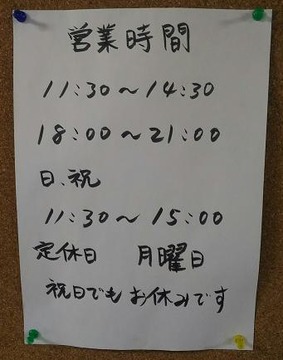 営業時間
11:30～14:30
18:00～21:00
日、祝
11:30～15:00
定休日 月曜日
祝日でもお休みです